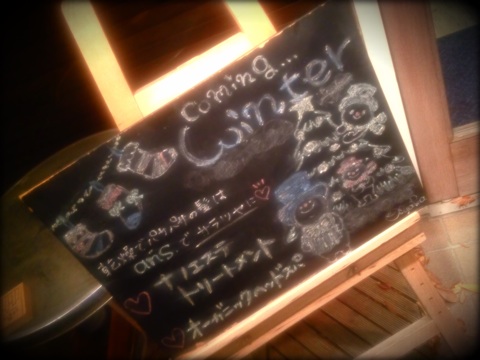 coming...
Winter
乾燥でパサパサの髪は
ans.で サラツヤに
ナリュステ
トリートメント
オーガニックヘッドスパ